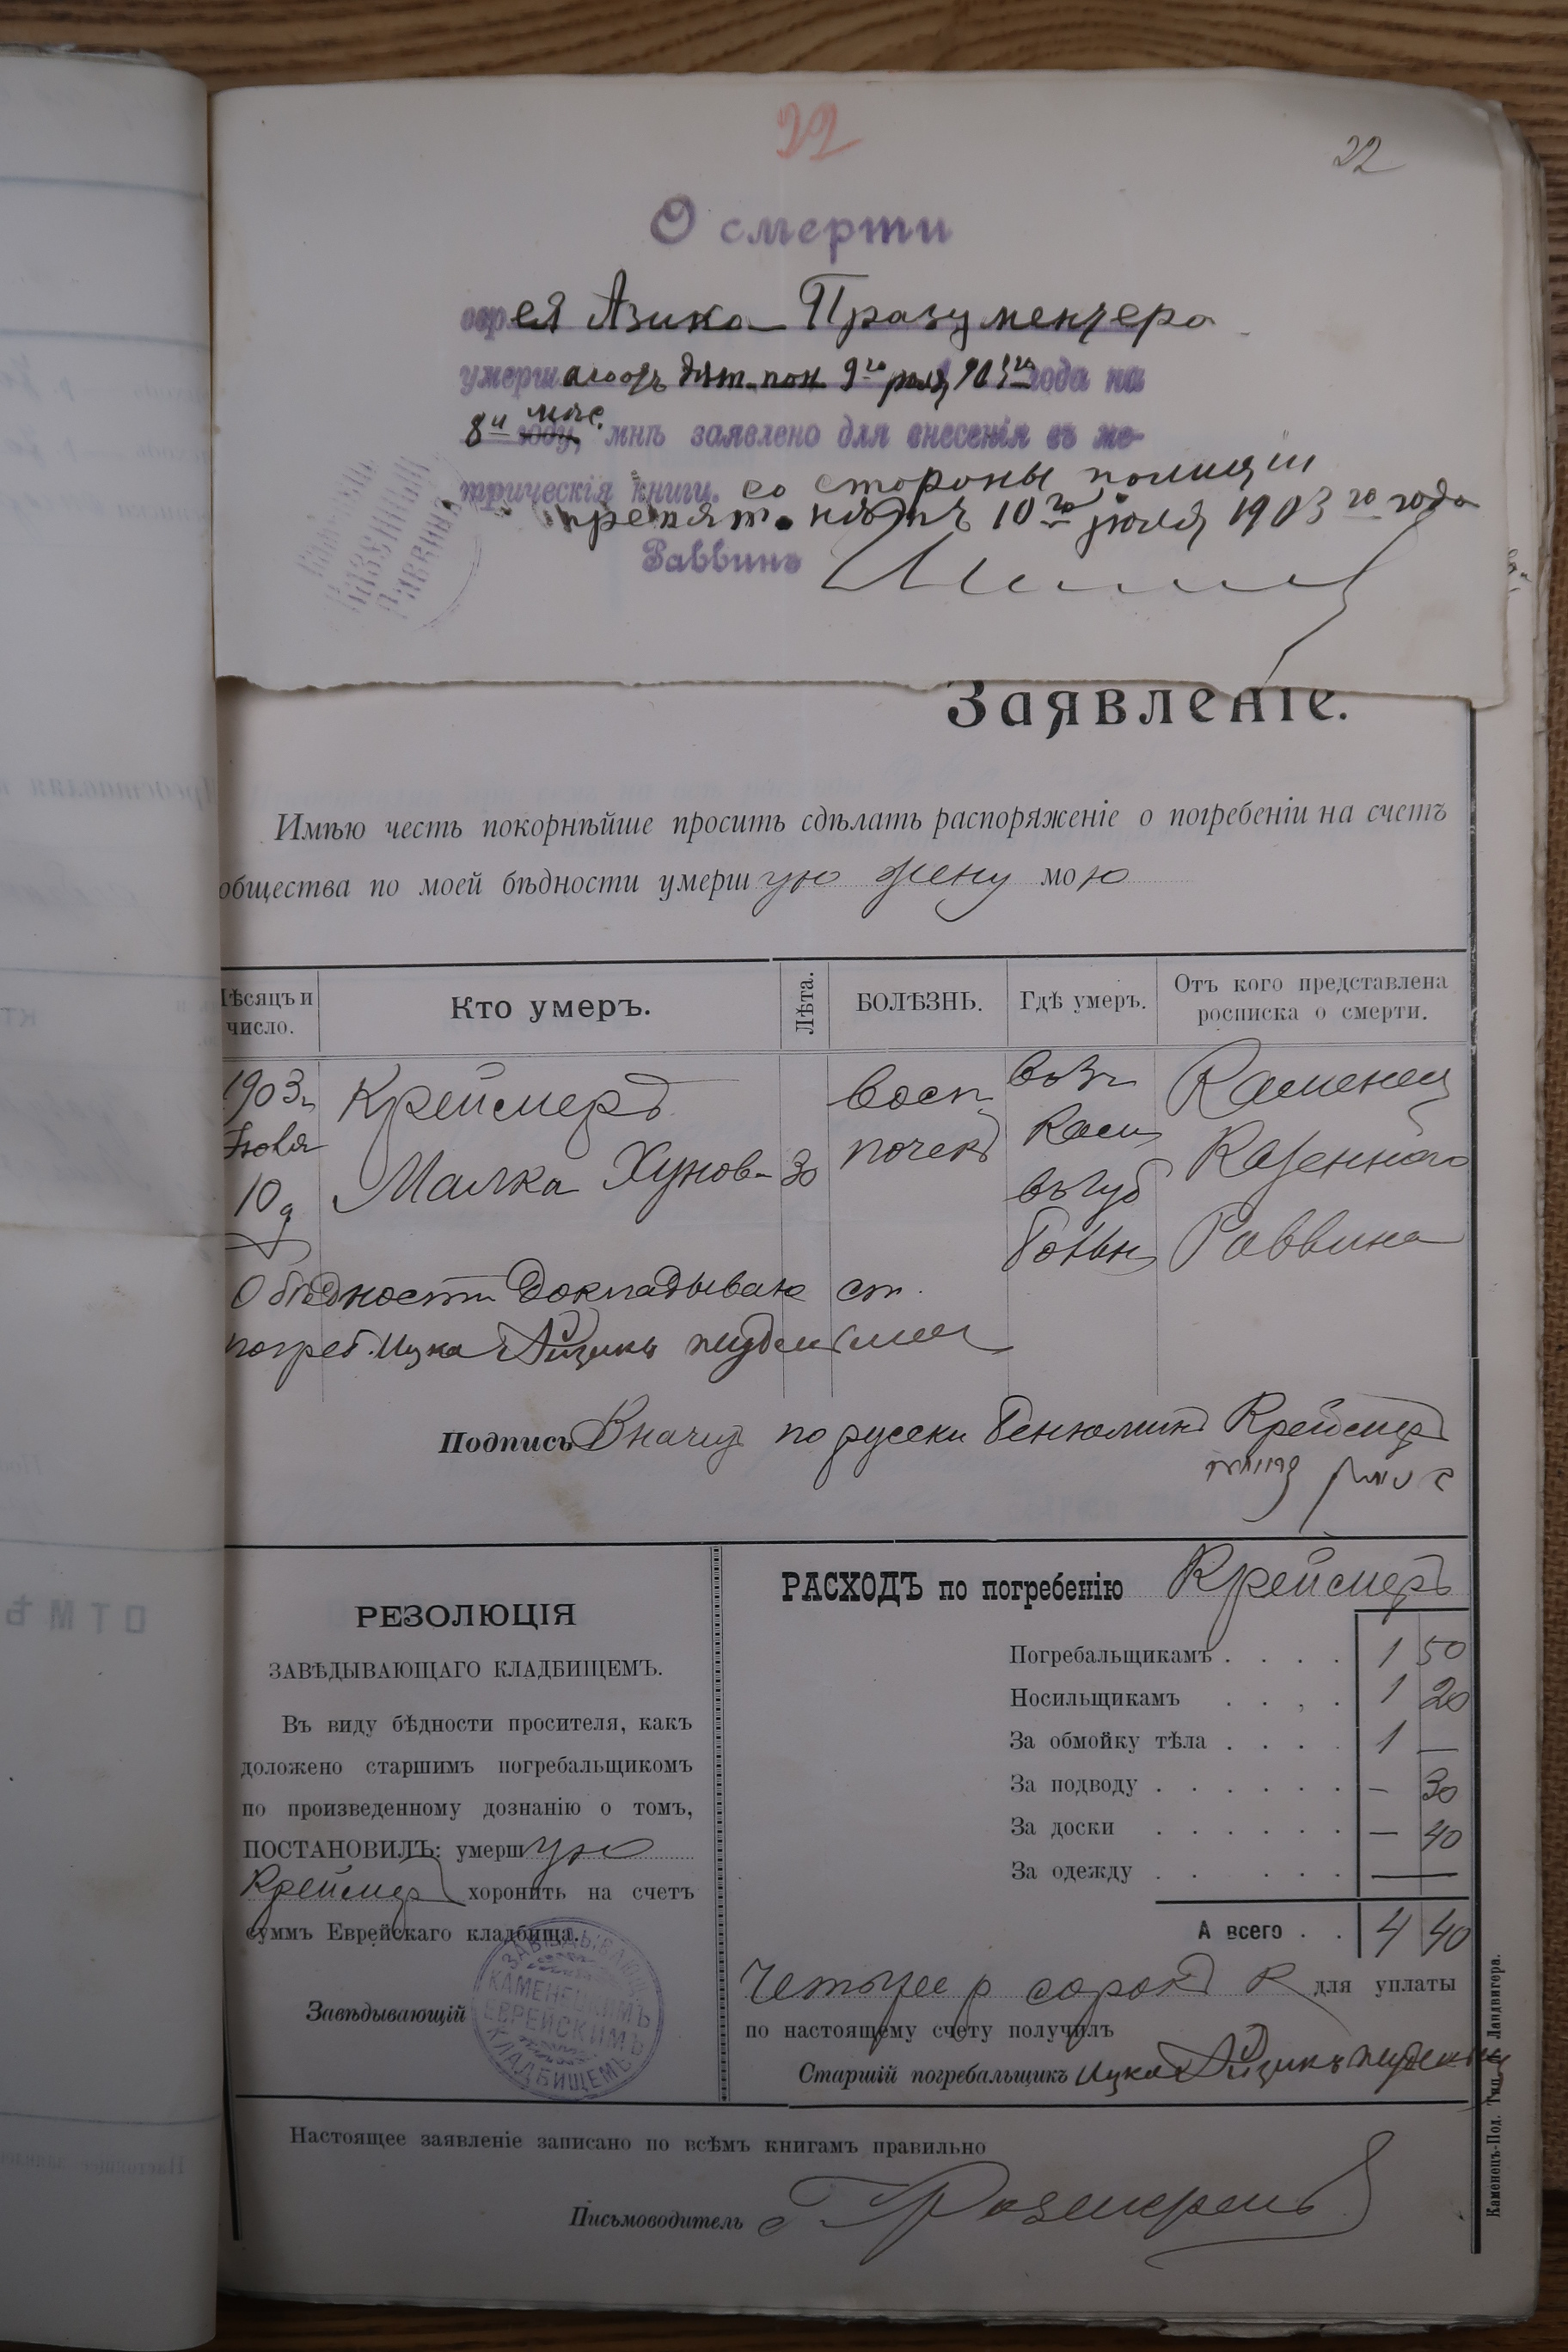 22
22
О смерти
еврея Азика Празументера
умершаго отъ дѣт. пон. 9го іюля 1903го года на
8й мѣс. году, мнѣ заявлено для внесенія въ ме-
трическія книги. со стороны полиціи
препят. нѣтъ 10го іюля 1903го года
Раввинъ
Заявленіе.
Имѣю честь покорнѣйше просить сдѣлать распоряженіе о погребеніи на счетъ
общества по моей бѣдности умершую жену мою
Мѣсяцъ и число.
Кто умеръ.
Лѣта.
БОЛѢЗНЬ.
Гдѣ умеръ.
Отъ кого представлена росписка о смерти.
1903г.
Іюля
10д
Крейсмеръ
Малка Хунов-
30
Восп
почекъ
въ г
Кам
въ губ
больн
Каменец
Казеннаго
Раввина
О бѣдности докладываю ст.
погреб. Ицка Айзикъ
Подпись Вначу по русски Бенюминъ Крейсмеръ
РЕЗОЛЮЦІЯ
ЗАВѢДЫВАЮЩАГО КЛАДБИЩЕМЪ.
Въ виду бѣдности просителя, какъ
доложено старшимъ погребальщикомъ
по произведенному дознанію о томъ,
ПОСТАНОВИЛЪ: умершую
Крейсмер хоронить на счетъ
суммъ Еврейскаго кладбища.
Завѣдывающій
ЗАВѢДЫВАЮЩ
КАМЕНЕЦКИМЪ
ЕВРЕЙСКИМЪ
КЛАДБИЩЕМЪ
РАСХОДЪ по погребенію Крейсмеръ
Погребальщикамъ . . . . 1 50
Носильщикамъ . . . . 1 20
За обмойку тѣла . . . . 1 —
За подводу . . . . . . — 30
За доски . . . . . . — 40
За одежду . . . . . . —
А всего . . 4 40
Четыре р сорокъ к для уплаты
по настоящему счету получилъ
Старшій погребальщикъ Ицка Айзикъ
Настоящее заявленіе записано по всѣмъ книгамъ правильно
Письмоводитель
Каменецъ-Под. Тип. Ландвигера.